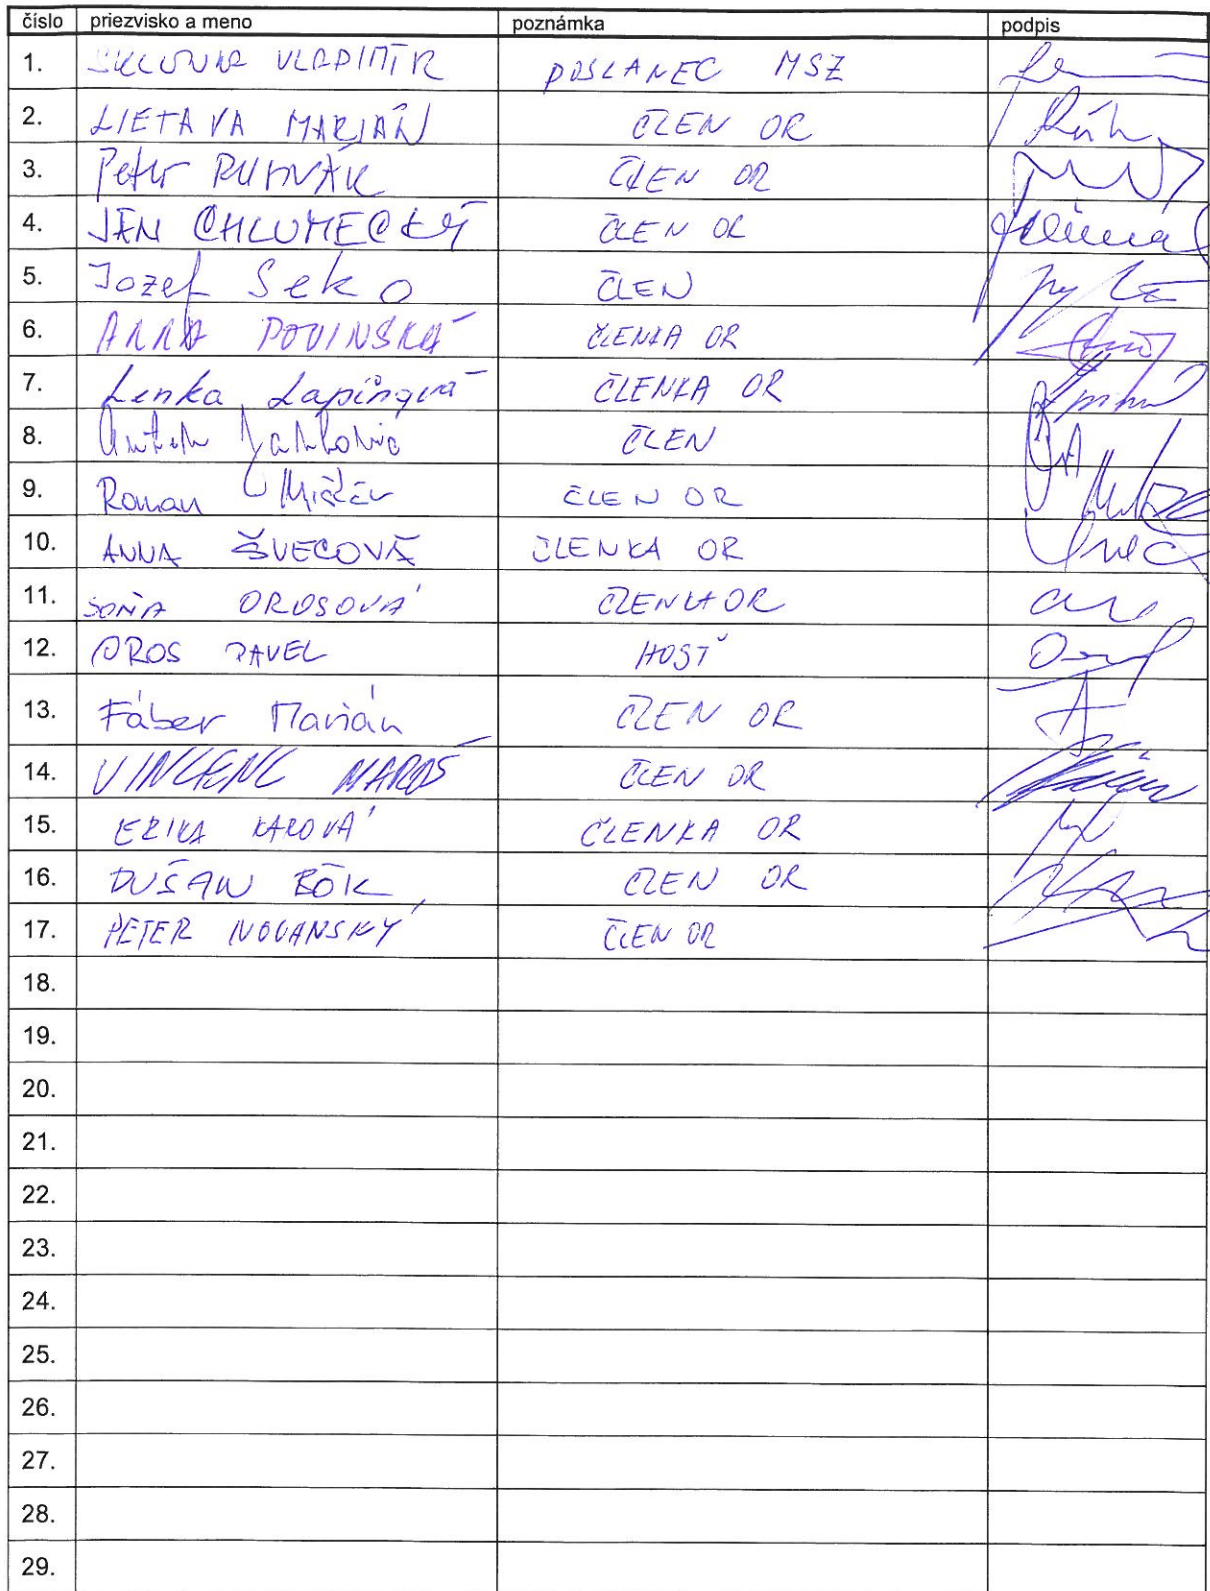 číslo priezvisko a meno poznámka podpis
1. VLADIMÍR POSLANEC MSZ
2. LIETAVA MARIÁN ČLEN OR
3. Peter RUŽNÁK ČLEN OR
4. JÁN CHLUMECKÝ ČLEN OR
5. Jozef Seko ČLEN
6. ANNA POVINSKÁ ČLENKA OR
7. Lenka Lapínová ČLENKA OR
8. ČLEN
9. Roman ČLEN OR
10. ANNA ŠVECOVÁ ČLENKA OR
11. SOŇA OROSOVÁ ČLENKA OR
12. OROS PAVEL HOSŤ
13. Fáber Marián ČLEN OR
14. VINCENC MAROŠ ČLEN OR
15. ERIKA KAROVÁ ČLENKA OR
16. DUŠAN BÓK ČLEN OR
17. PETER NOVANSKÝ ČLEN OR
18.
19.
20.
21.
22.
23.
24.
25.
26.
27.
28.
29.